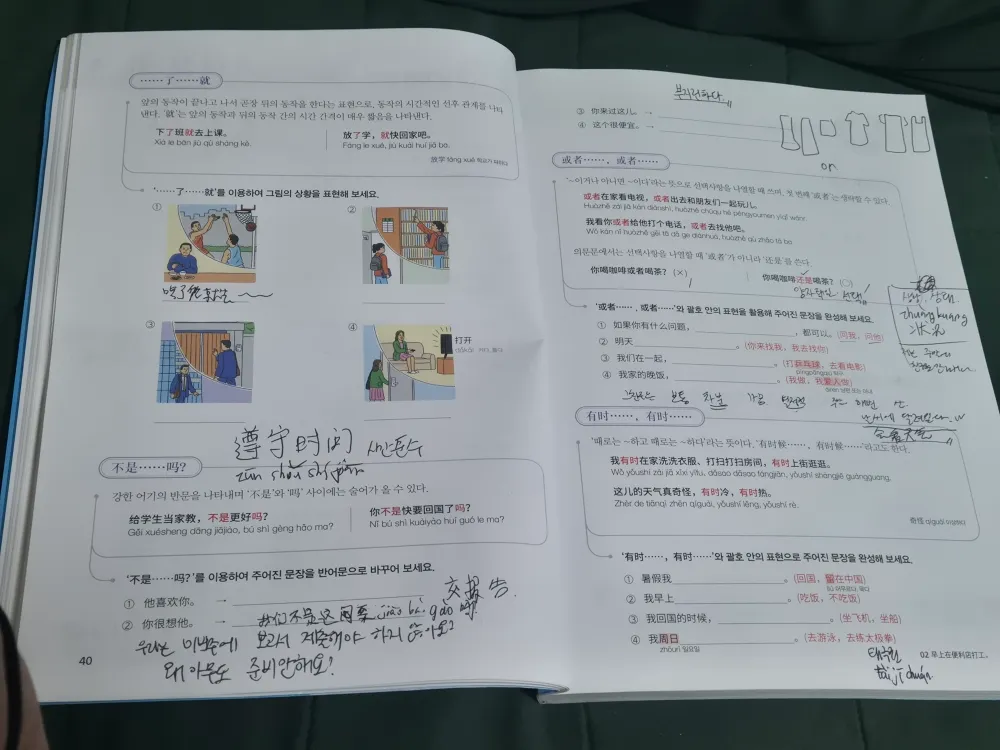 ……了……就
앞의 동작이 끝나고 나서 곧장 뒤의 동작을 한다는 표현으로, 동작의 시간적인 선후 관계를 나타
낸다. '就'는 앞의 동작과 뒤의 동작 간의 시간 간격이 매우 짧음을 나타낸다.
下了班就去上课。
Xià le bān jiù qù shàng kè.
放了学，就快回家吧。
Fàng le xué, jiù kuài huí jiā ba.
放学 fàng xué 학교가 파하다
'……了……就'를 이용하여 그림의 상황을 표현해 보세요.
①
②
③
④
打开
dǎkāi 켜다, 틀다
遵守时间 시간준수
zūn shǒu shí jiān
不是……吗?
강한 어기의 반문을 나타내며 '不是'와 '吗' 사이에는 술어가 올 수 있다.
给学生当家教，不是更好吗?
Gěi xuésheng dāng jiājiào, bú shì gèng hǎo ma?
你不是快要回国了吗?
Nǐ bú shì kuàiyào huí guó le ma?
'不是……吗?'를 이용하여 주어진 문장을 반어문으로 바꾸어 보세요.
① 他喜欢你。 →
② 你很想他。 →
交报告.
我们不是这周要 jiāo bào gào 吗?
우리는 이번주에 보고서 제출해야 하지 않아요?
왜 아무도 준비안해요?
40
분기전하다
③ 你来过这儿。 →
④ 这个很便宜。 →
or
或者……，或者……
'~이거나 아니면 ~이다'라는 뜻으로 선택사항을 나열할 때 쓰며, 첫 번째 '或者'는 생략할 수 있다.
或者在家看电视，或者出去和朋友们一起玩儿。
Huòzhě zài jiā kàn diànshì, huòzhě chūqu hé péngyoumen yìqǐ wánr.
我看你或者给他打个电话，或者去找他吧。
Wǒ kàn nǐ huòzhě gěi tā dǎ ge diànhuà, huòzhě qù zhǎo tā ba.
의문문에서는 선택사항을 나열할 때 '或者'가 아니라 '还是'를 쓴다.
你喝咖啡或者喝茶? (×)
你喝咖啡还是喝茶? (○)
양자택일 선택!
상황, 상태
zhuàng kuàng
状况
'或者……，或者……'와 괄호 안의 표현을 활용해 주어진 문장을 완성해 보세요.
① 如果你有什么问题，，都可以。(问我，问他)
② 明天。(你来找我，我去找你)
③ 我们在一起，。(打乒乓球，去看电影)
pīngpāngqiú 탁구
④ 我家的晚饭，。(我做，我爱人做)
àiren 남편 또는 아내
有时……，有时……
'때로는 ~하고 때로는 ~하다'라는 뜻이다. '有时候……，有时候……'라고도 한다.
我有时在家洗洗衣服、打扫打扫房间，有时上街逛逛。
Wǒ yǒushí zài jiā xǐxi yīfu, dǎsao dǎsao fángjiān, yǒushí shàngjiē guàngguang.
这儿的天气真奇怪，有时冷，有时热。
Zhèr de tiānqì zhēn qíguài, yǒushí lěng, yǒushí rè.
奇怪 qíguài 이상하다
'有时……，有时……'와 괄호 안의 표현으로 주어진 문장을 완성해 보세요.
① 暑假我。(回国，留在中国)
liú 머무르다, 묵다
② 我早上。(吃饭，不吃饭)
③ 我回国的时候，。(坐飞机，坐船)
④ 我周日。(去游泳，去练太极拳)
zhōurì 일요일
태극권
tài jí chuán
02 早上在便利店打工。